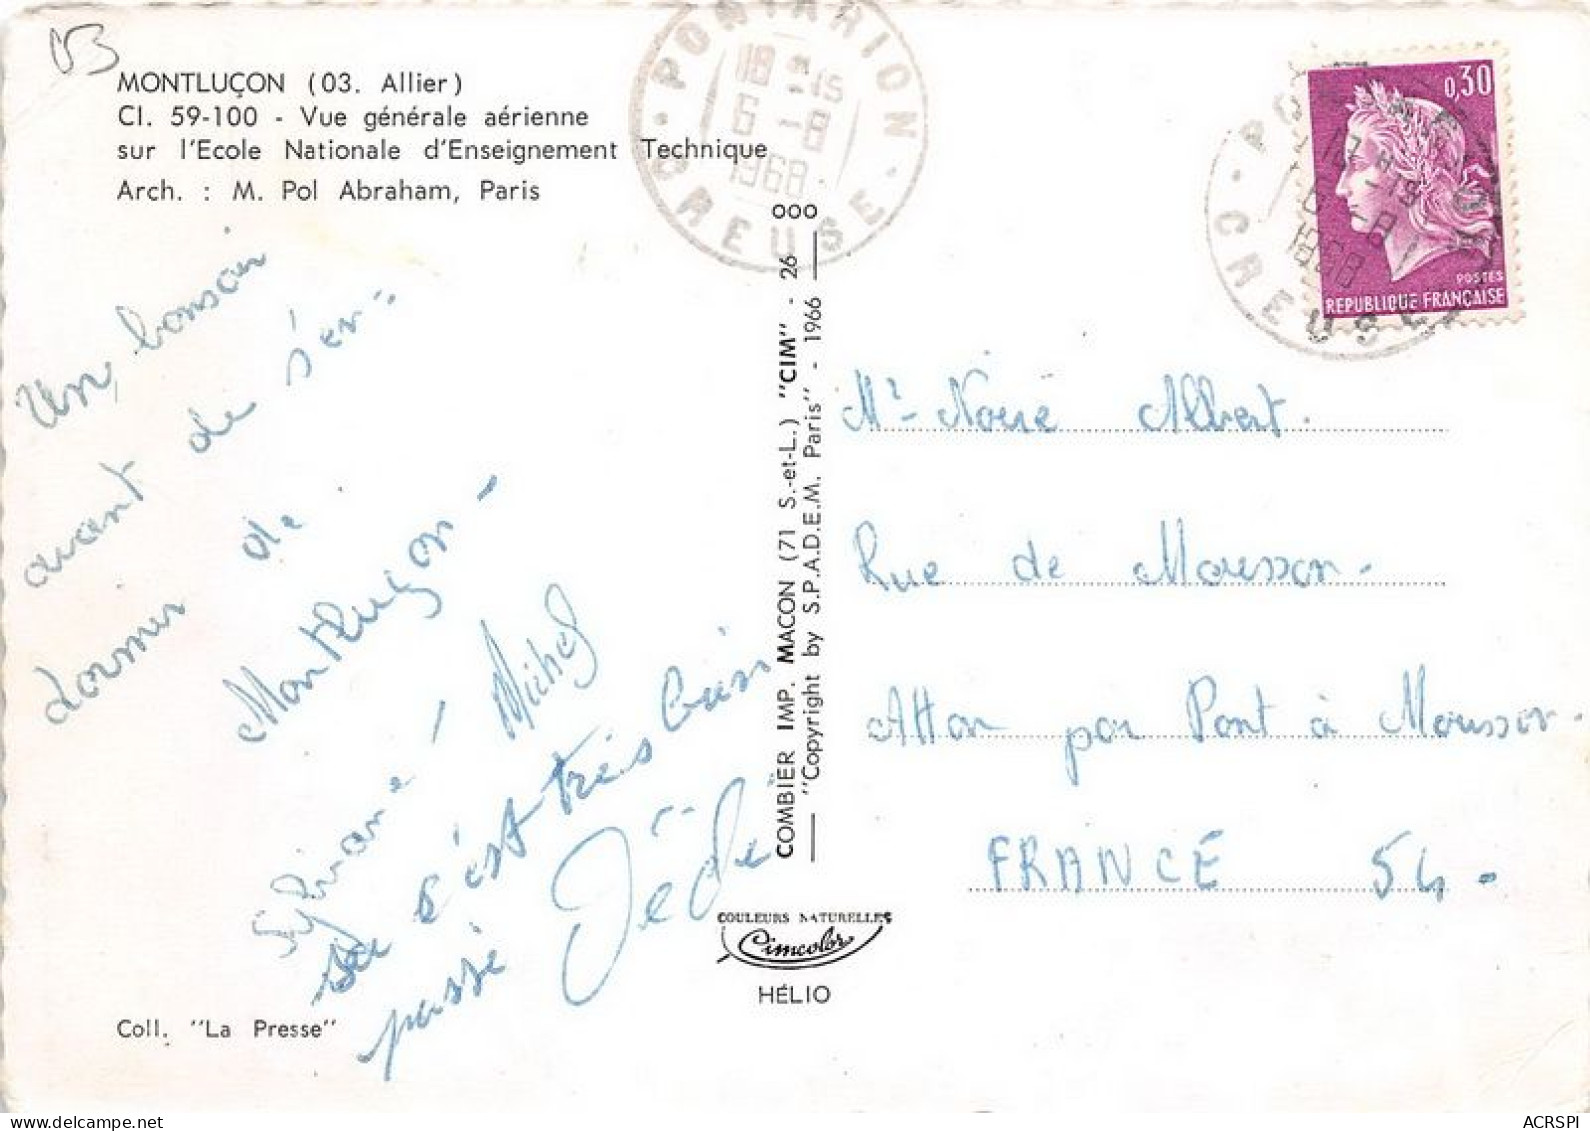 03
MONTLUÇON (03. Allier)
Cl. 59-100 - Vue générale aérienne
sur l'Ecole Nationale d'Enseignement Technique
Arch. : M. Pol Abraham, Paris
Un bonsoir
avant de s'en-
dormir de
Montluçon -
Sylviane / Michel
c'est très bien
passé Dédé
Coll. "La Presse"
PONTARION
18 H -15
6 -8
1968
CREUSE
COMBIER IMP. MACON (71 S.-et-L.) "CIM" - 26 000
"Copyright by S.P.A.D.E.M. Paris" - 1966
COULEURS NATURELLES
Cimcolor
HÉLIO
0,30
POSTES
REPUBLIQUE FRANÇAISE
CREUSE
Mr Noiré Albert.
Rue de Mousson.
Atton par Pont à Mousson.
FRANCE 54.
ACRSPI